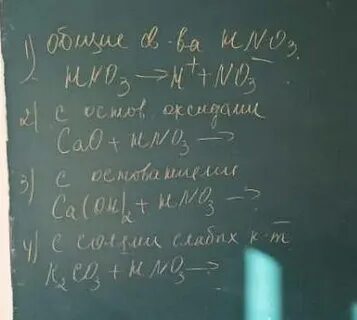 1) Общие св-ва HNO3.
HNO3 → H⁺ + NO3⁻
2) с основ. оксидами
CaO + HNO3 → ?
3) с основаниями
Ca(OH)2 + HNO3 → ?
4) с солями слабых к-т
K2CO3 + HNO3 → ?